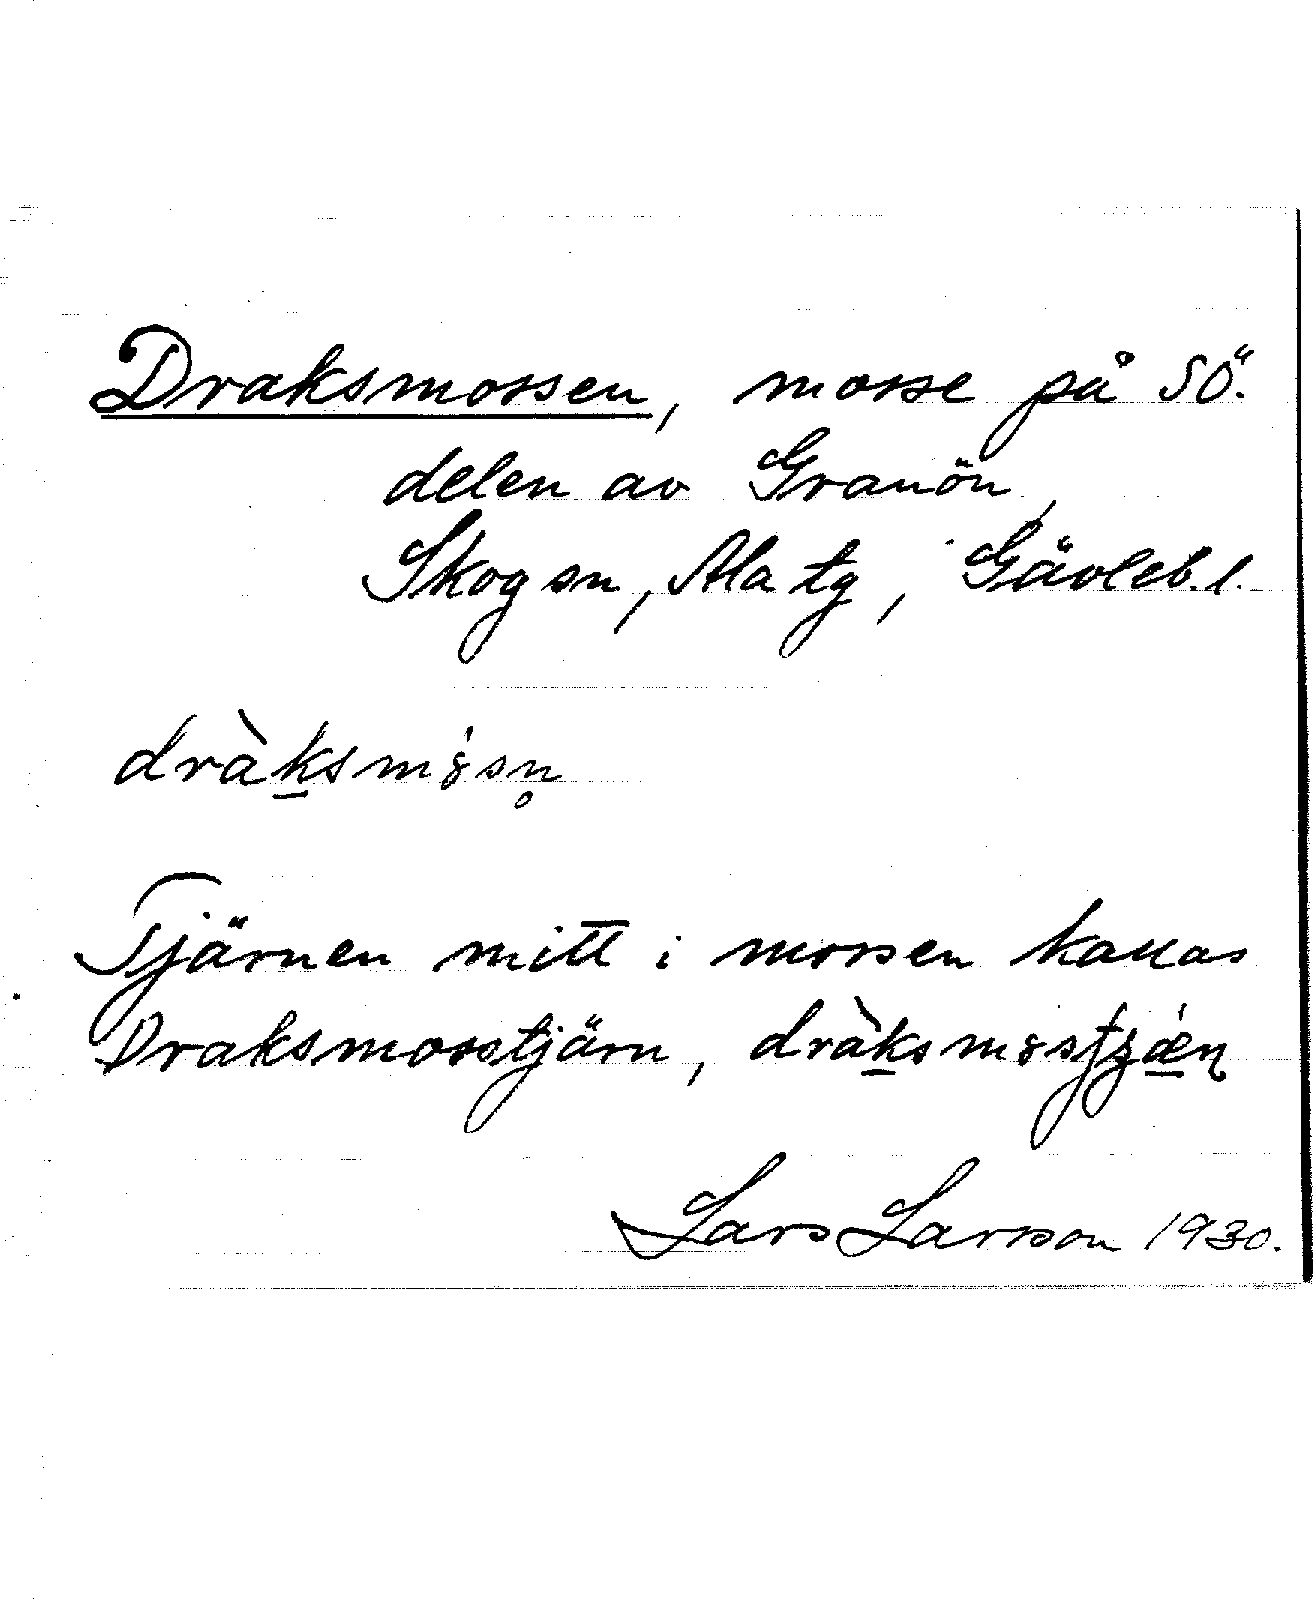 Draksmossen, mosse på SÖ.
delen av Granön,
Skog sn, Ala tg, Gävleb. l.
dràksmȣ́sn̥
Tjärnen mitt i mossen kallas
Draksmosstjärn, dràksmȣs
Lars Larsson 1930.